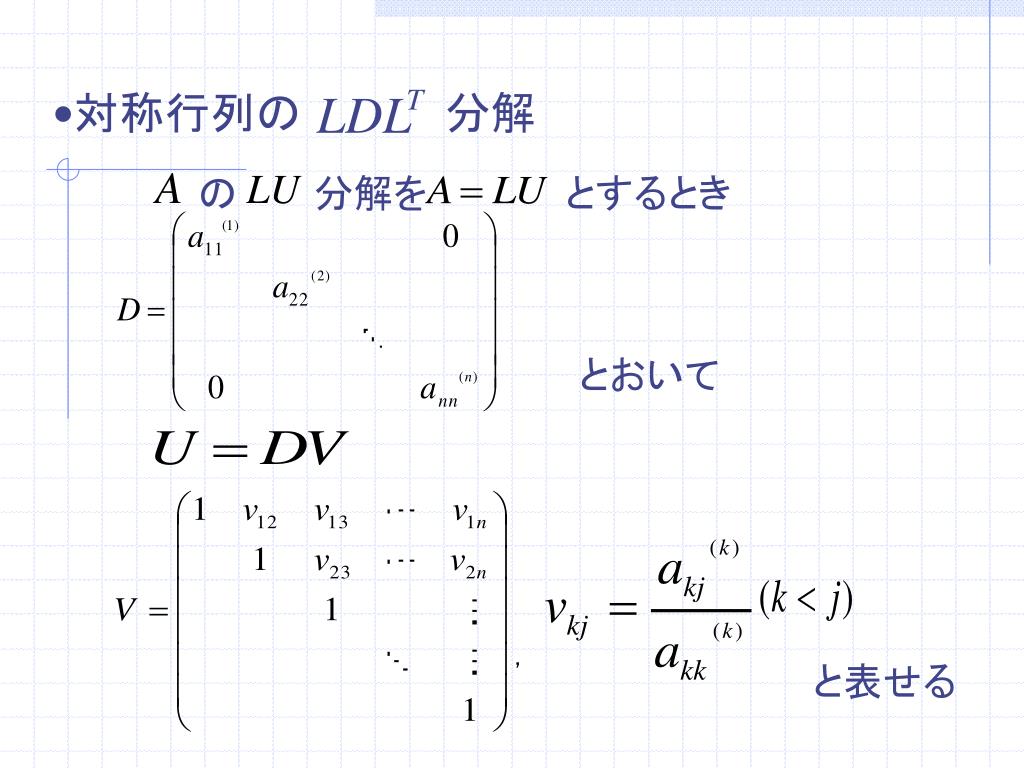 •対称行列の LDL^T 分解
A の LU 分解を A = LU とするとき
D = \begin{pmatrix} a_{11}^{(1)} & & & 0 \\ & a_{22}^{(2)} & & \\ & & \ddots & \\ 0 & & & a_{nn}^{(n)} \end{pmatrix} とおいて
U = DV
V = \begin{pmatrix} 1 & v_{12} & v_{13} & \cdots & v_{1n} \\ & 1 & v_{23} & \cdots & v_{2n} \\ & & 1 & & \vdots \\ & & & \ddots & \vdots \\ & & & & 1 \end{pmatrix}, v_{kj} = \frac{a_{kj}^{(k)}}{a_{kk}^{(k)}} (k < j)
と表せる